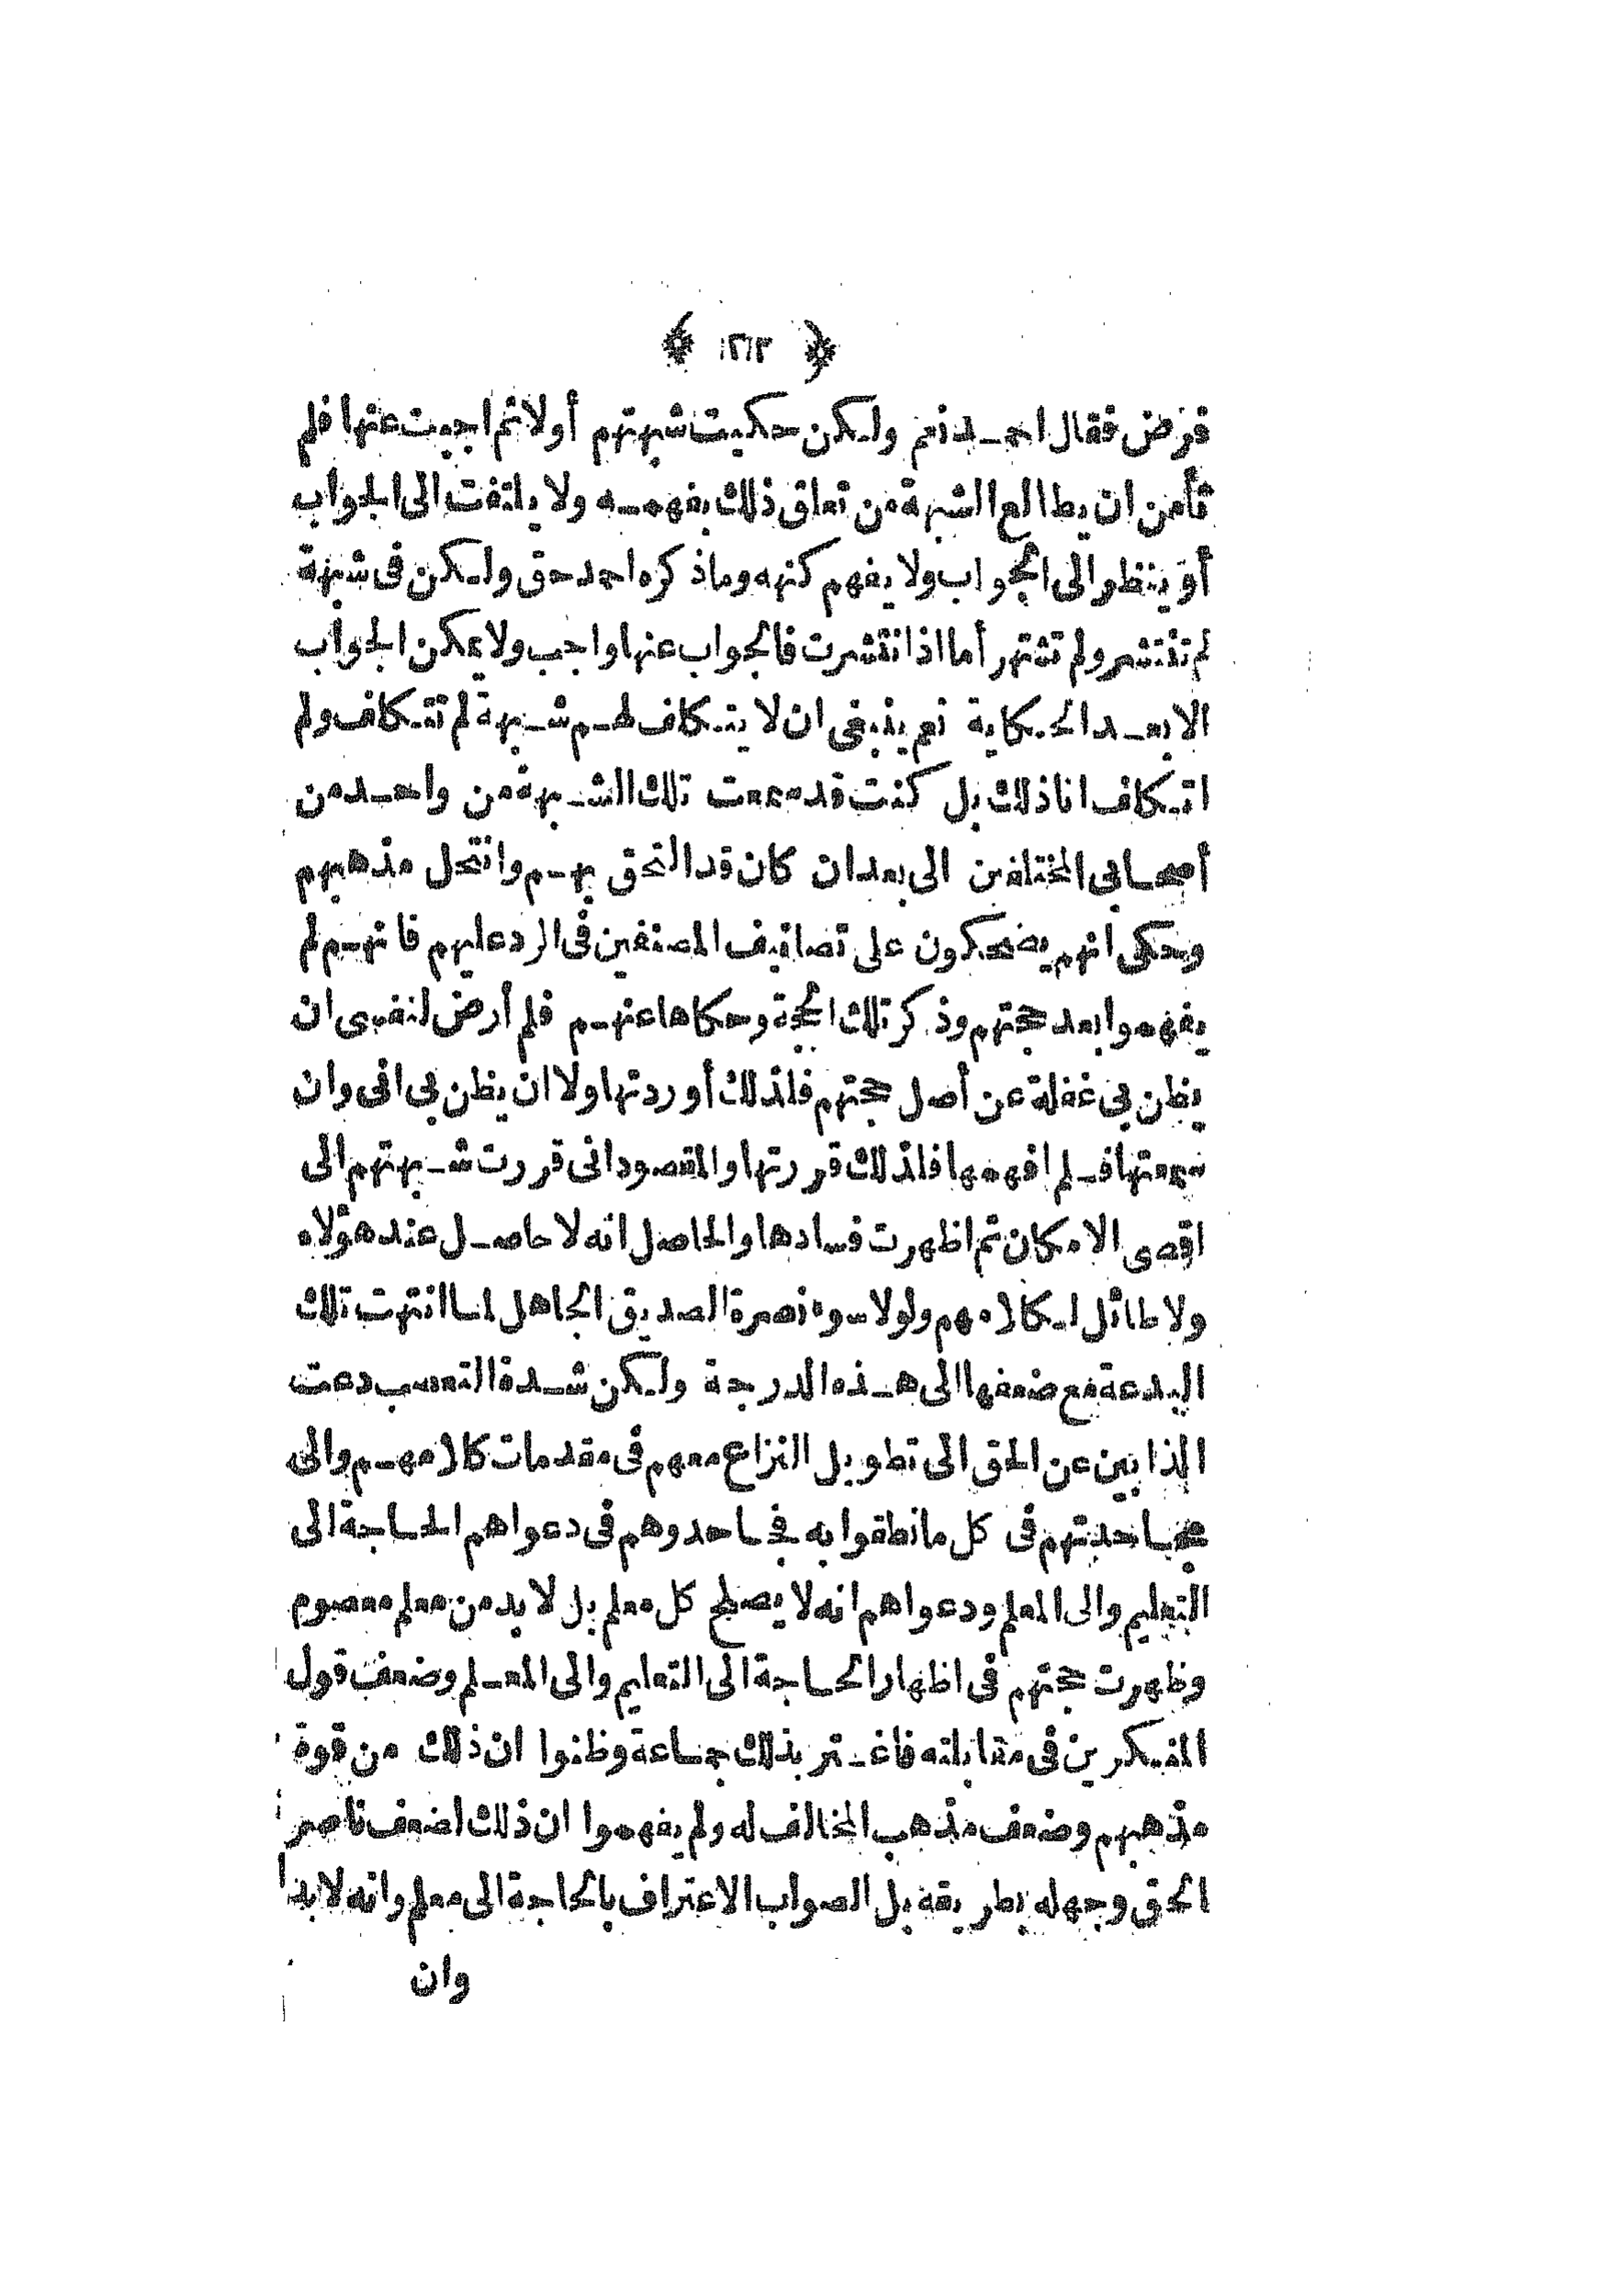 فرض فقال احمد نعم ولكن حكيت شبهتهم أولا ثم اجبت عنها فلم
تأمن ان يطالع الشبهة من تعلق ذلك بفهمه ولا يلتفت الى الجواب
أو ينظر الى الجواب ولا يفهم كنهه وما ذكره احمد حق ولكن فى شبهة
لم تنتشر ولم تشتهر أما اذا انتشرت فالجواب عنها واجب ولا يمكن الجواب
الا بعد الحكاية نعم ينبغى ان لا يتكلف لهم شبهة لم تتكلف ولم
اتكلف انا ذلك بل كنت قد سمعت تلك الشبهة من واحد من
أصحابى المختلفين الى بعد ان كان قد التحق بهم وانتحل مذهبهم
وحكى انهم يضحكون على تصانيف المصنفين فى الرد عليهم فانهم لم
يفهموا بعد حجتهم وذكر تلك الحجة وحكاها عنهم فلم أرض لنفسى ان
يظن بى غفلة عن أصل حجتهم فلذلك أوردتها ولا ان يظن بى انى وان
سمعتها فلم افهمها فلذلك قررتها والمقصود انى قررت شبهتهم الى
اقصى الامكان ثم اظهرت فسادها والحاصل انه لا حاصل عند هؤلاء
ولا طائل لكلامهم ولولا سوء نصرة الصديق الجاهل لما انتهت تلك
البدعة مع ضعفها الى هذه الدرجة ولكن شدة التعصب دعت
الذابين عن الحق الى تطويل النزاع معهم فى مقدمات كلامهم والى
مجاحدتهم فى كل ما نطقوا به فجاحدوهم فى دعواهم الحاجة الى
التعليم والى المعلم ودعواهم انه لا يصلح كل معلم بل لا بد من معلم معصوم
وظهرت حجتهم فى اظهار الحاجة الى التعليم والى المعلم وضعف قول
المنكرين فى مقابلته فاغتر بذلك جماعة وظنوا ان ذلك من قوة
مذهبهم وضعف مذهب المخالف له ولم يفهموا ان ذلك لضعف ناصر
الحق وجهله بطريقه بل الصواب الاعتراف بالحاجة الى معلم وانه لا بد
وان